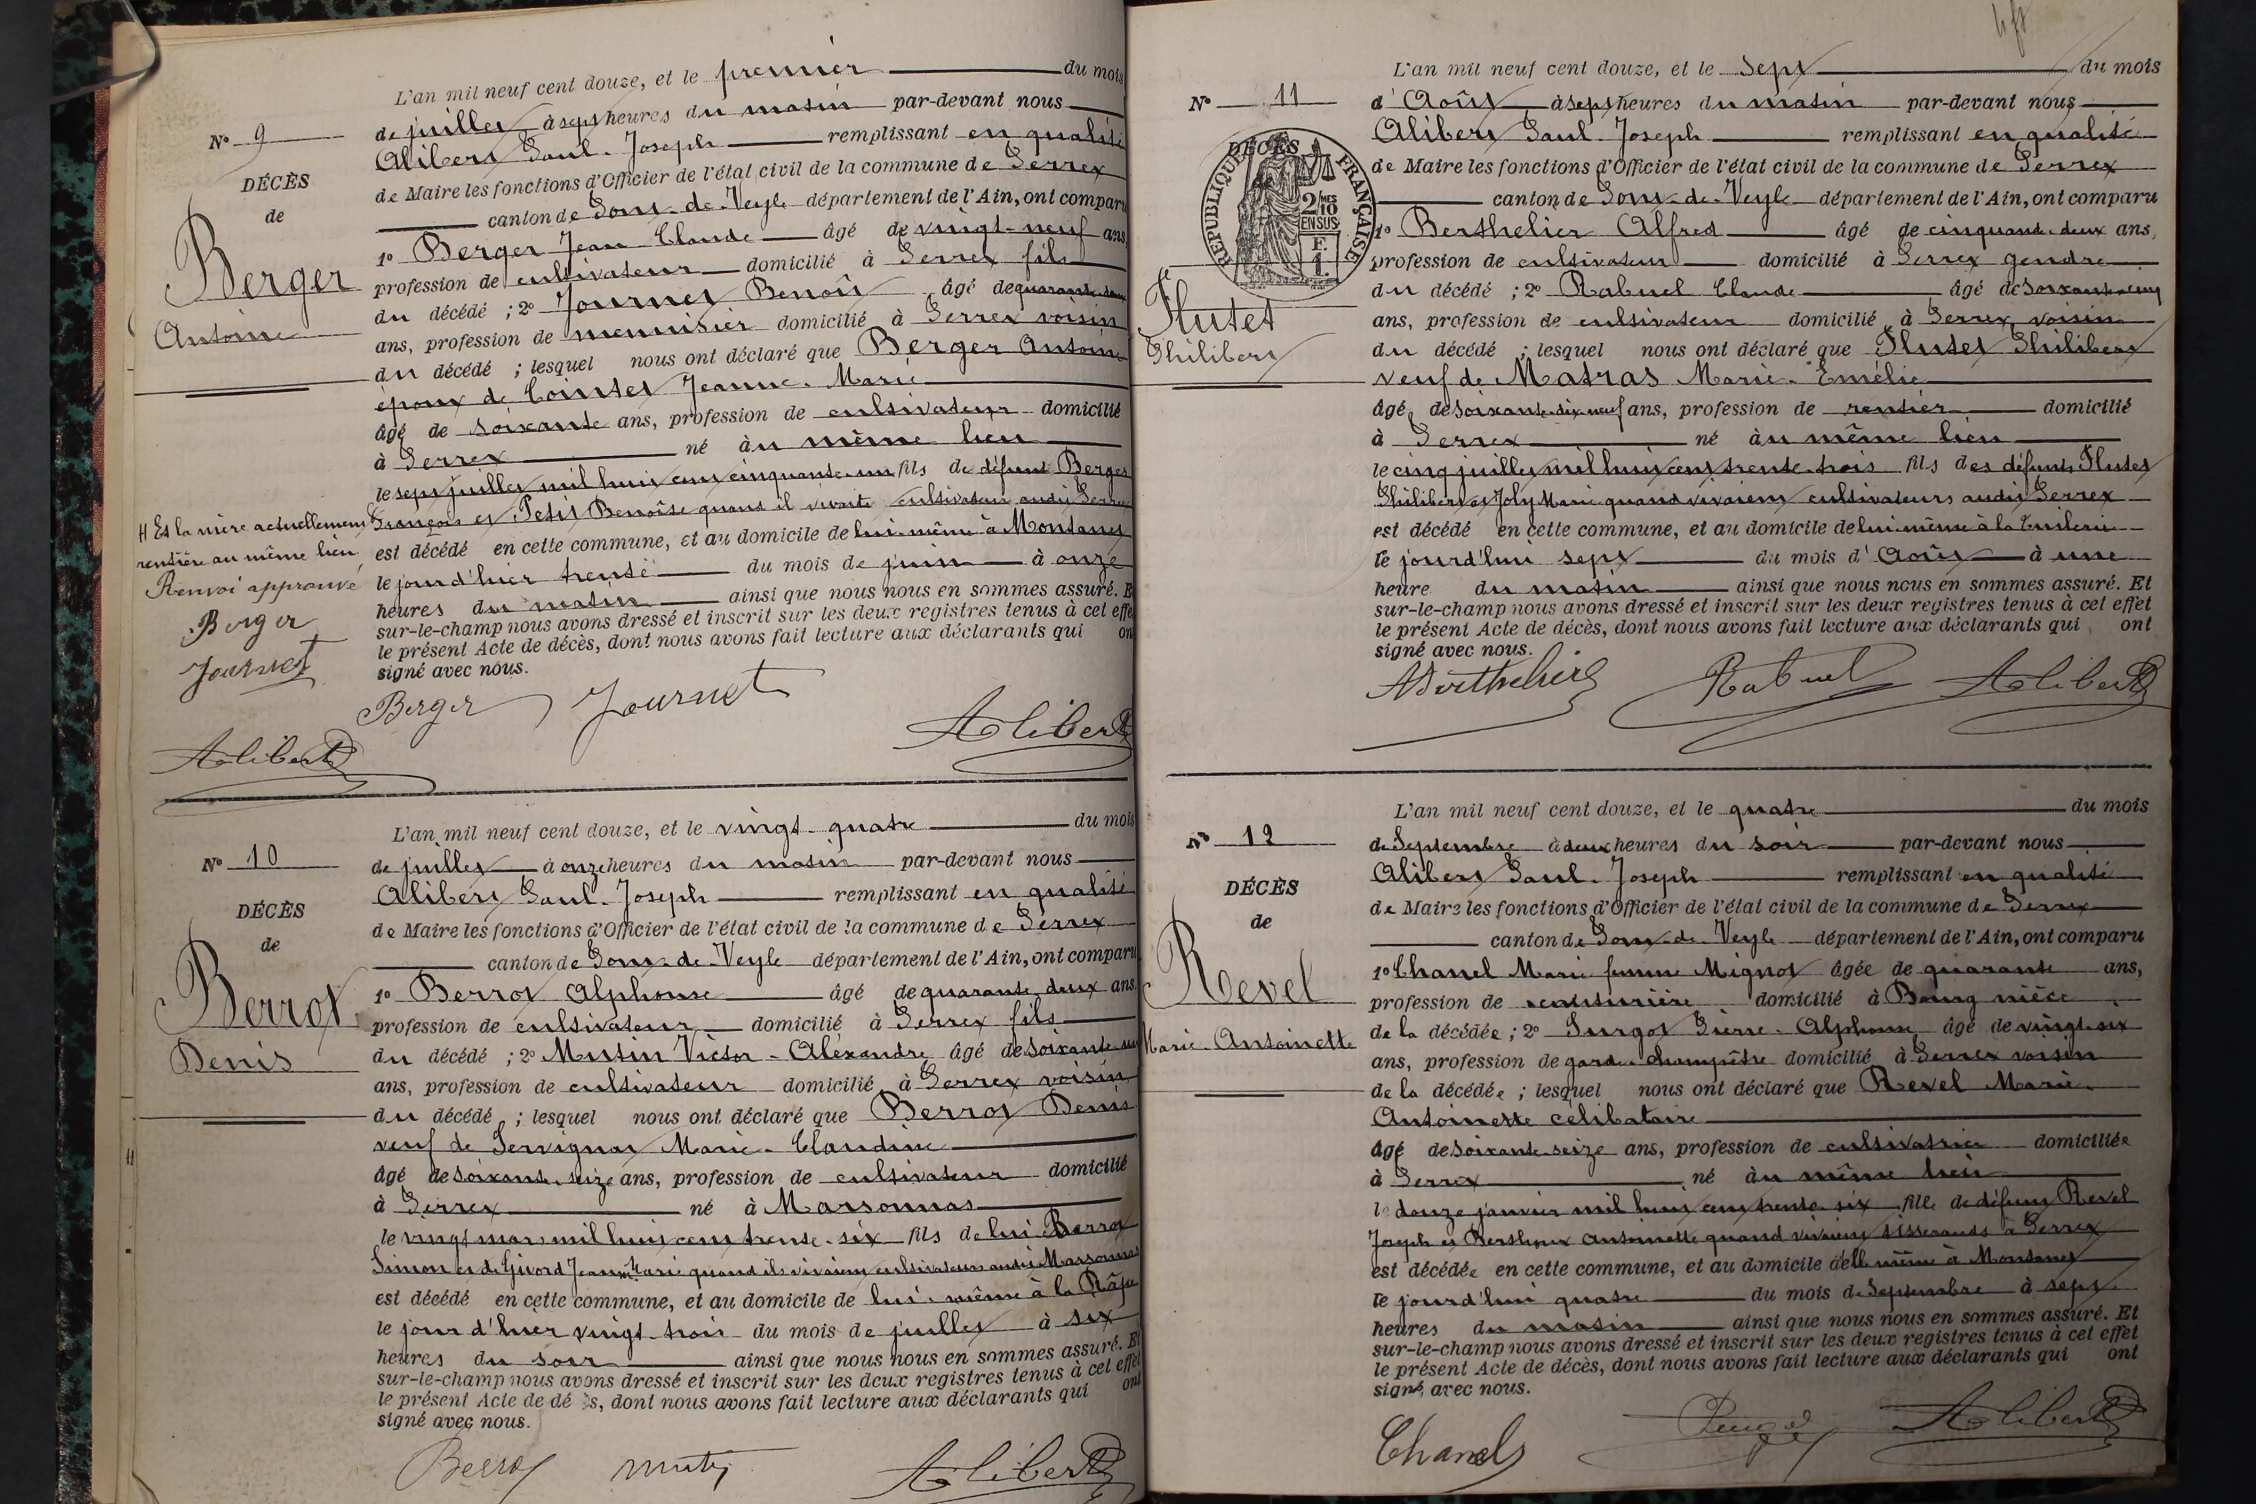 L'an mil neuf cent douze, et le premier du mois
de juillet à sept heures du matin par-devant nous
Alibert Paul-Joseph remplissant en qualité
de Maire les fonctions d'Officier de l'état civil de la commune de Perrex
canton de Pont-de-Veyle département de l'Ain, ont comparu
1º Berger Jean Claude âgé de vingt-neuf ans,
profession de cultivateur domicilié à Perrex fils
du décédé ; 2º Journet Benoît âgé de quarante-deux
ans, profession de menuisier domicilié à Perrex voisin
du décédé ; lesquel nous ont déclaré que Berger Antoine
époux de Cointet Jeanne-Marie
âgé de soixante ans, profession de cultivateur domicilié
à Perrex né à u même lieu
le sept juillet mil huit cent cinquante-un fils de défunt Berger
François et Petit Benoîte quand il vivait cultivateur audit Perrex
est décédé en cette commune, et au domicile de lui-même à Montanet
le jour d'hier trente du mois de juin à onze
heures du matin ainsi que nous nous en sommes assuré. Et
sur-le-champ nous avons dressé et inscrit sur les deux registres tenus à cet effet
le présent Acte de décès, dont nous avons fait lecture aux déclarants qui ont
signé avec nous.
Berger Journet Alibert
Nº 9
DÉCÈS
de
Berger
Antoine
H Et la mère actuellement
rentière au même lieu
Renvoi approuvé
Berger
Journet
Alibert
L'an mil neuf cent douze, et le vingt-quatre du mois
de juillet à onze heures du matin par-devant nous
Alibert Paul-Joseph remplissant en qualité
de Maire les fonctions d'Officier de l'état civil de la commune de Perrex
canton de Pont-de-Veyle département de l'Ain, ont comparu
1º Berrot Alphonse âgé de quarante-deux ans
profession de cultivateur domicilié à Perrex fils
du décédé ; 2º Mutin Victor-Alexandre âgé de soixante
ans, profession de cultivateur domicilié à Perrex voisin
du décédé ; lesquel nous ont déclaré que Berrot Denis
veuf de Servignat Marie-Claudine
âgé de soixante-seize ans, profession de cultivateur domicilié
à Perrex né à Marsonnas
le vingt mars mil huit cent trente-six fils de lui Berrot
Simon et de Givord Jeanne Marie quand ils vivaient cultivateurs audit Marsonnas
est décédé en cette commune, et au domicile de lui-même à la
le jour d'hier vingt-trois du mois de juillet à six
heures du soir ainsi que nous nous en sommes assuré. Et
sur-le-champ nous avons dressé et inscrit sur les deux registres tenus à cet effet
le présent Acte de dé ès, dont nous avons fait lecture aux déclarants qui ont
signé avec nous.
Berrot Mutin Alibert
Nº 10
DÉCÈS
de
Berrot
Denis
L'an mil neuf cent douze, et le sept du mois
d'Août à sept heures du matin par-devant nous
Alibert Paul-Joseph remplissant en qualité
de Maire les fonctions d'Officier de l'état civil de la commune de Perrex
canton de Pont-de-Veyle département de l'Ain, ont comparu
1º Berthelier Alfred âgé de cinquante-deux ans,
profession de cultivateur domicilié à Perrex gendre
du décédé ; 2º Rabuel Claude âgé de soixante-cinq
ans, profession de cultivateur domicilié à Perrex voisin
du décédé ; lesquel nous ont déclaré que Flutet Philibert
veuf de Matras Marie-Emélie
âgé de soixante-dix-neuf ans, profession de rentier domicilié
à Perrex né à u même lieu
le cinq juillet mil huit cent trente-trois fils des défunts Flutet
Philibert et Joly Marie quand vivaient cultivateurs audit Perrex
est décédé en cette commune, et au domicile de lui-même à la Tuilerie
le jourd'hui sept du mois d'Août à une
heure du matin ainsi que nous nous en sommes assuré. Et
sur-le-champ nous avons dressé et inscrit sur les deux registres tenus à cet effet
le présent Acte de décès, dont nous avons fait lecture aux déclarants qui ont
signé avec nous.
ABerthelier Rabuel Alibert
Nº 11
DÉCÈS
REPUBLIQUE FRANÇAISE
2/10 MES
EN SUS
F.
1.
Flutet
Philibert
L'an mil neuf cent douze, et le quatre du mois
de Septembre à deux heures du soir par-devant nous
Alibert Paul-Joseph remplissant en qualité
de Maire les fonctions d'Officier de l'état civil de la commune de Perrex
canton de Pont-de-Veyle département de l'Ain, ont comparu
1º Chanel Marie femme Mignot âgée de quarante ans,
profession de couturière domicilié à Bourg nièce
de la décédée ; 2º Pierre-Alphonse âgé de vingt-six
ans, profession de garde-champêtre domicilié à Perrex voisin
de la décédée ; lesquel nous ont déclaré que Revel Marie-
Antoinette célibataire
âgé de soixante-seize ans, profession de cultivatrice domiciliée
à Perrex né à u même lieu
le douze janvier mil huit cent trente-six fille de défunt Revel
Joseph et Berthoux Antoinette quand vivaient tisserands à Perrex
est décédée en cette commune, et au domicile d'elle-même à Montanet
le jourd'hui quatre du mois de Septembre à sept
heures du matin ainsi que nous nous en sommes assuré. Et
sur-le-champ nous avons dressé et inscrit sur les deux registres tenus à cet effet
le présent Acte de décès, dont nous avons fait lecture aux déclarants qui ont
signé avec nous.
Chanel Alibert
Nº 12
DÉCÈS
de
Revel
Marie-Antoinette